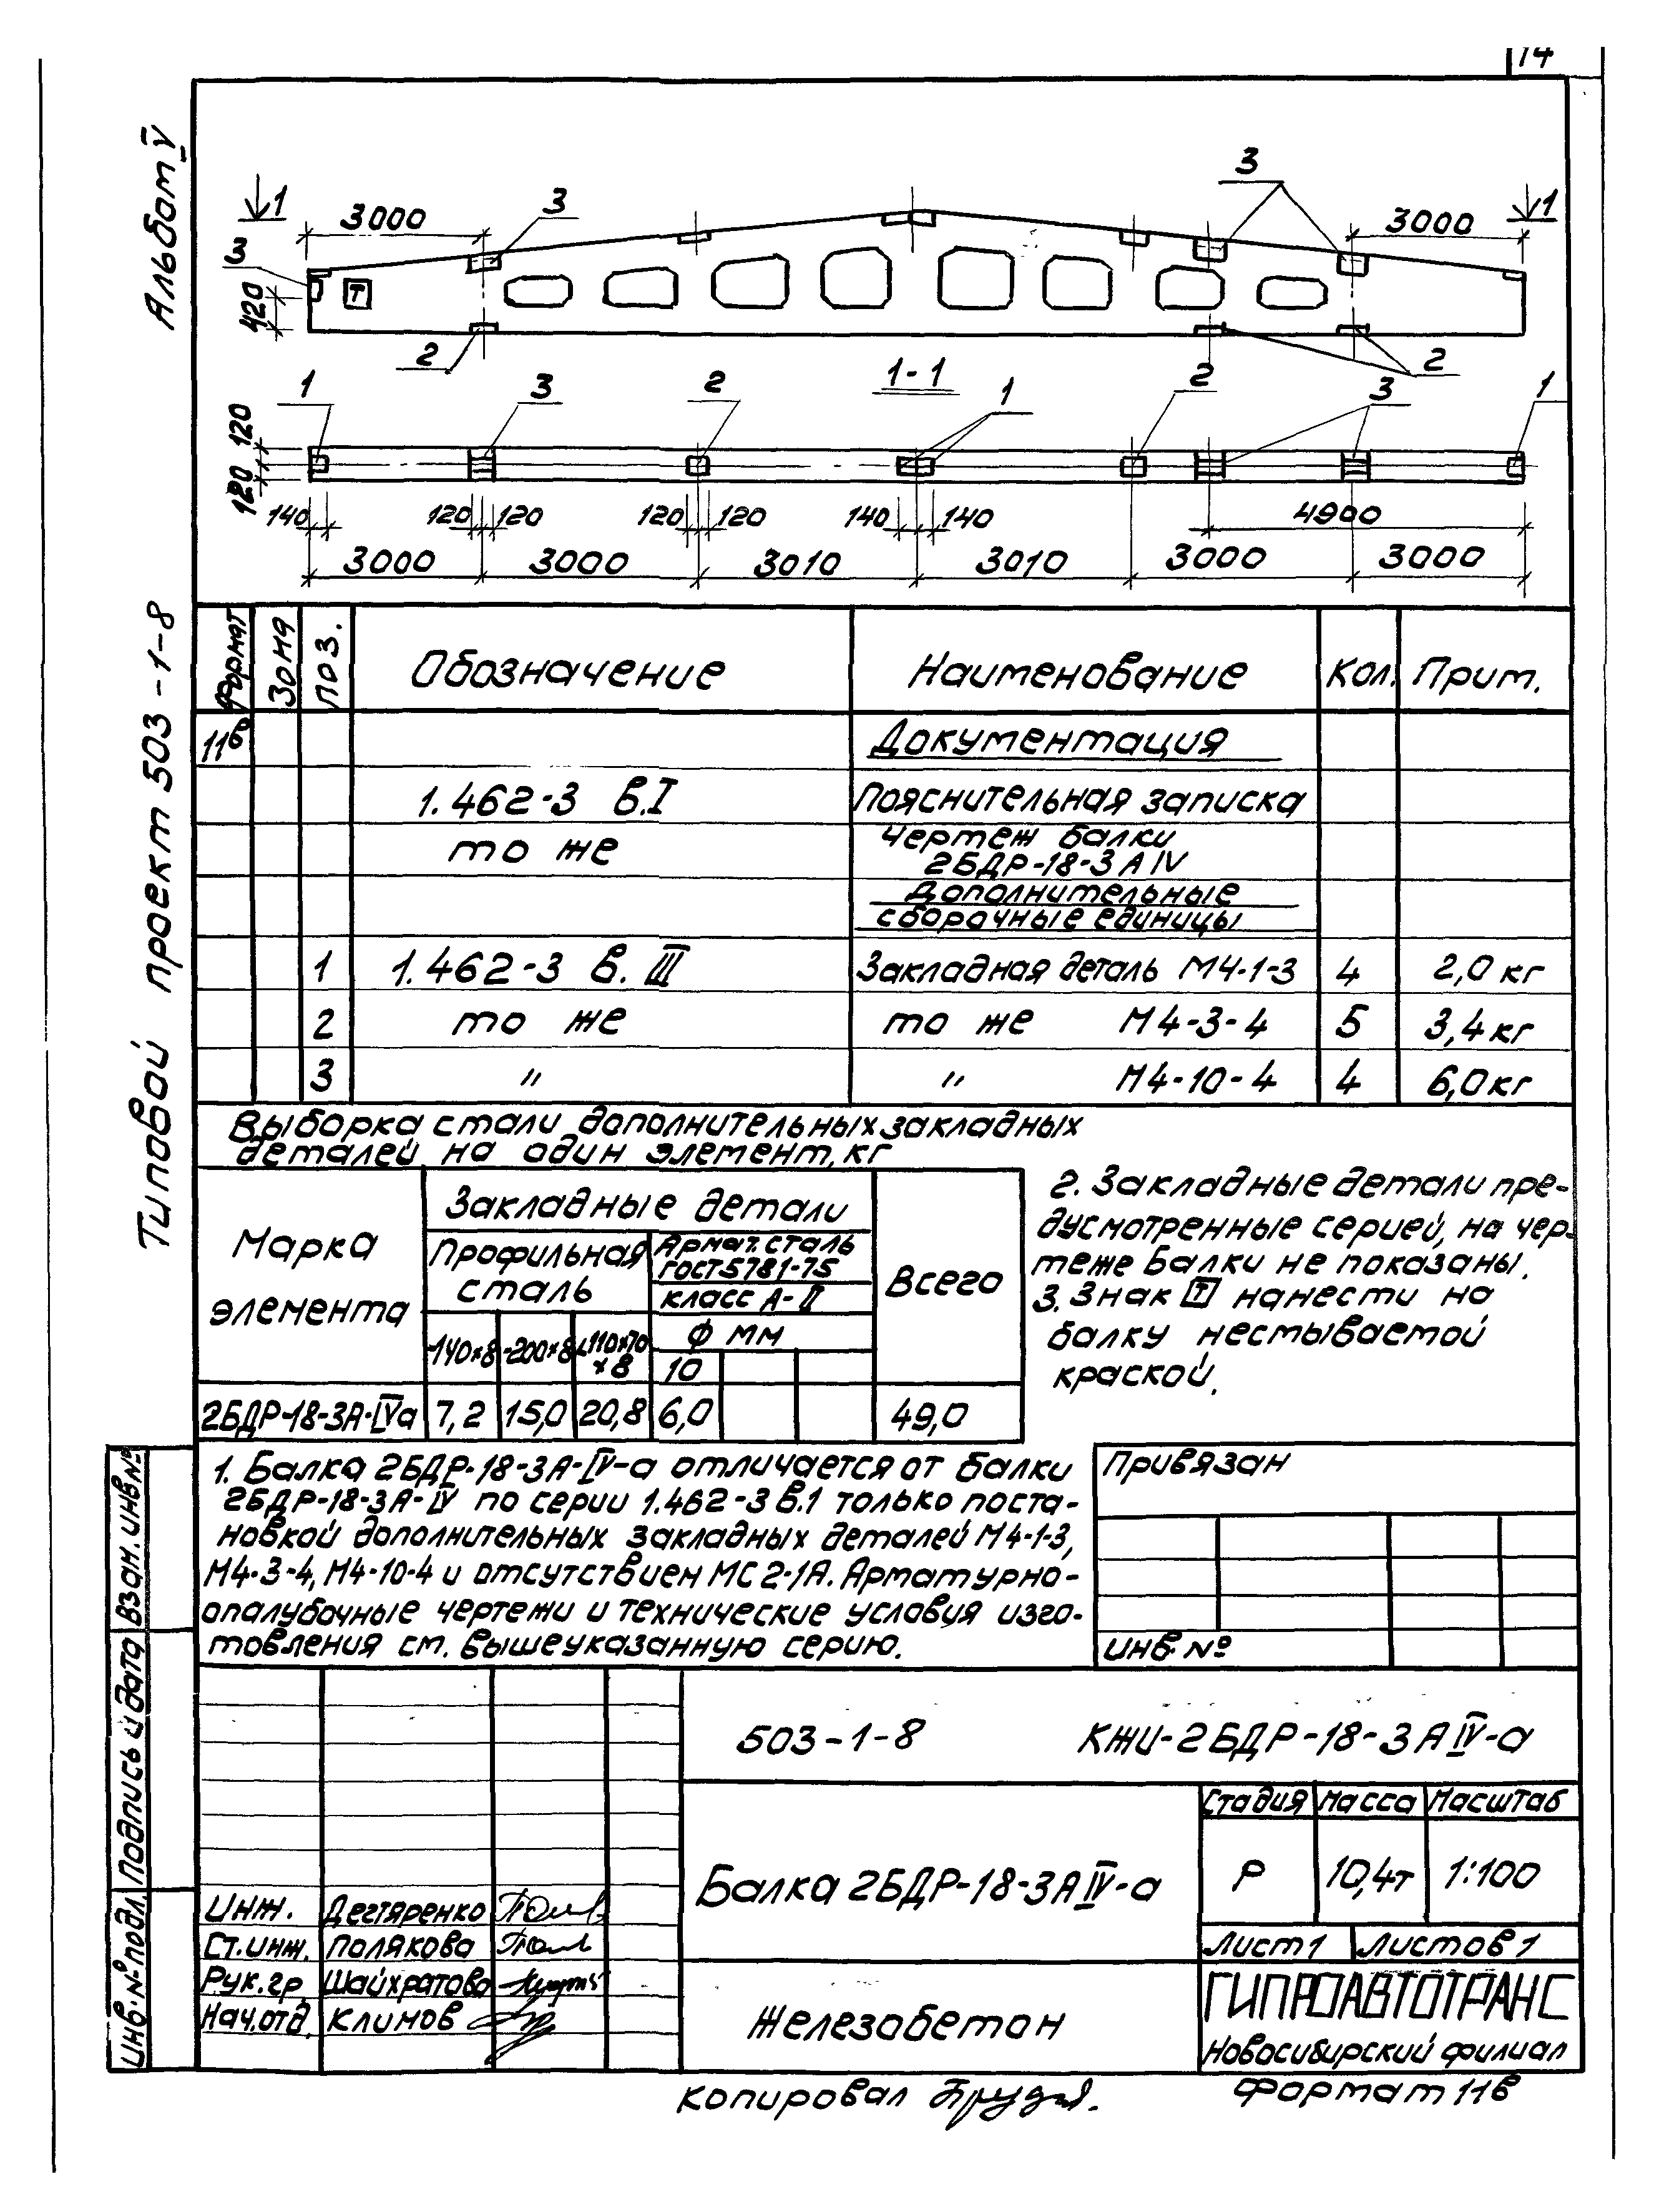 14
Альбом V
Типовой проект 503-1-8
3
1 3000 3 3000 1
3
Т
420
2 2
1-1
1 3 2 1 2 3 1
120
120
140 120 120 120 120 140 140 4900
3000 3000 3010 3010 3000 3000
Формат Зона Поз. Обозначение Наименование Кол. Прим.
11в Документация
1.462-3 в.I Пояснительная записка
то же Чертеж балки
2БДР-18-3 А IV
Дополнительные
сборочные единицы
1 1.462-3 в. III Закладная деталь М4-1-3 4 2,0 кг
2 то же то же М4-3-4 5 3,4 кг
3 " " М4-10-4 4 6,0 кг
Выборка стали дополнительных закладных
деталей на один элемент, кг
Марка
элемента
Закладные детали
Профильная
сталь
Армат. сталь
ГОСТ 5781-75
класс А-II
Ф мм
Всего
-140×8 -200×8 ∟110×70
×8
10
2БДР-18-3А-IVа 7,2 15,0 20,8 6,0 49,0
2. Закладные детали пре-
дусмотренные серией, на чер-
теже балки не показаны.
3. Знак Т нанести на
балку несмываемой
краской.
1. Балка 2БДР-18-3А-IV-а отличается от балки
2БДР-18-3А-IV по серии 1.462-3 в.1 только поста-
новкой дополнительных закладных деталей М4-1-3,
М4-3-4, М4-10-4 и отсутствием МС2-1А. Арматурно-
опалубочные чертежи и технические условия изго-
товления см. вышеуказанную серию.
Привязан
Инв. №
503-1-8 КЖИ-2БДР-18-3А IV-а
Балка 2БДР-18-3А IV-а
Стадия Масса Масштаб
Р 10,4т 1:100
Лист 1 Листов 1
Железобетон
ГИПРОАВТОТРАНС
Новосибирский филиал
Инж. Дегтяренко
Ст. инж. Полякова
Рук. гр. Шайхратова
Нач. отд. Климов
Взан. инв. №
Подпись и дата
Инв. № подл.
Копировал
Формат 11в